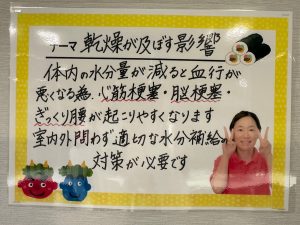 テーマ 乾燥が及ぼす影響
体内の水分量が減ると血行が
悪くなる為、心筋梗塞・脳梗塞・
ぎっくり腰が起こりやすくなります
室内外問わず適切な水分補給の
対策が必要です